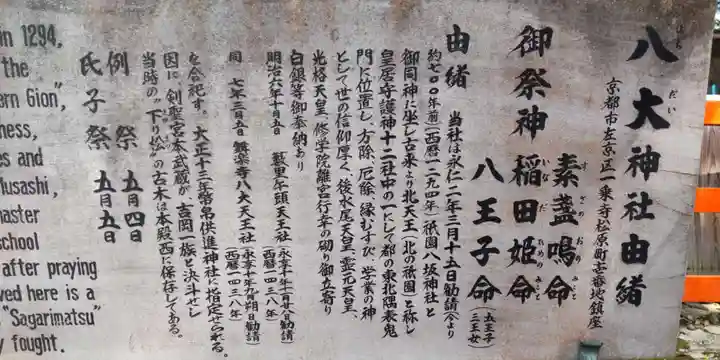 八大神社由緒
はち だい
京都市左京区一乗寺松原町壱番地鎮座
御祭神
素盞鳴命
すさ の おの みこと
稲田姫命
いな だ ひめの みこと
八王子命
(五王子
三王女)
由緒
当社は永仁二年三月十五日勧請(今より
約七〇〇年前)(西暦一二九四年)祇園八坂神社と
御同神に坐し古来より北天王(北の祇園)と称し
皇居守護神十二社中の一にして都の東北隅表鬼
門に位置し、方除、厄除、縁むすび、学業の神
として世の信仰厚く、後水尾天皇、霊元天皇、
光格天皇、修学院離宮行幸の砌り御立寄り
白銀等御奉納あり
明治六年十月五日 藪里牛頭天王社(永享十年二月十八日勧請)
(西暦一四二八年)
同 七年三月五日 舞楽寺八大天王社(永享十年九月朔日勧請)
(西暦一四三八年)
を合祀す。大正十三年幣帛供進神社に指定せられる。
因に剣聖宮本武蔵が吉岡一族と決斗せし
当時の"下り松"の古木は本殿西に保存してある。
例祭 五月四日
氏子祭 五月五日
in 1294,
the
ern Gion",
ness,
es and
Musashi,
master
school
after praying
ved here is a
"Sagarimatsu"
y fought.